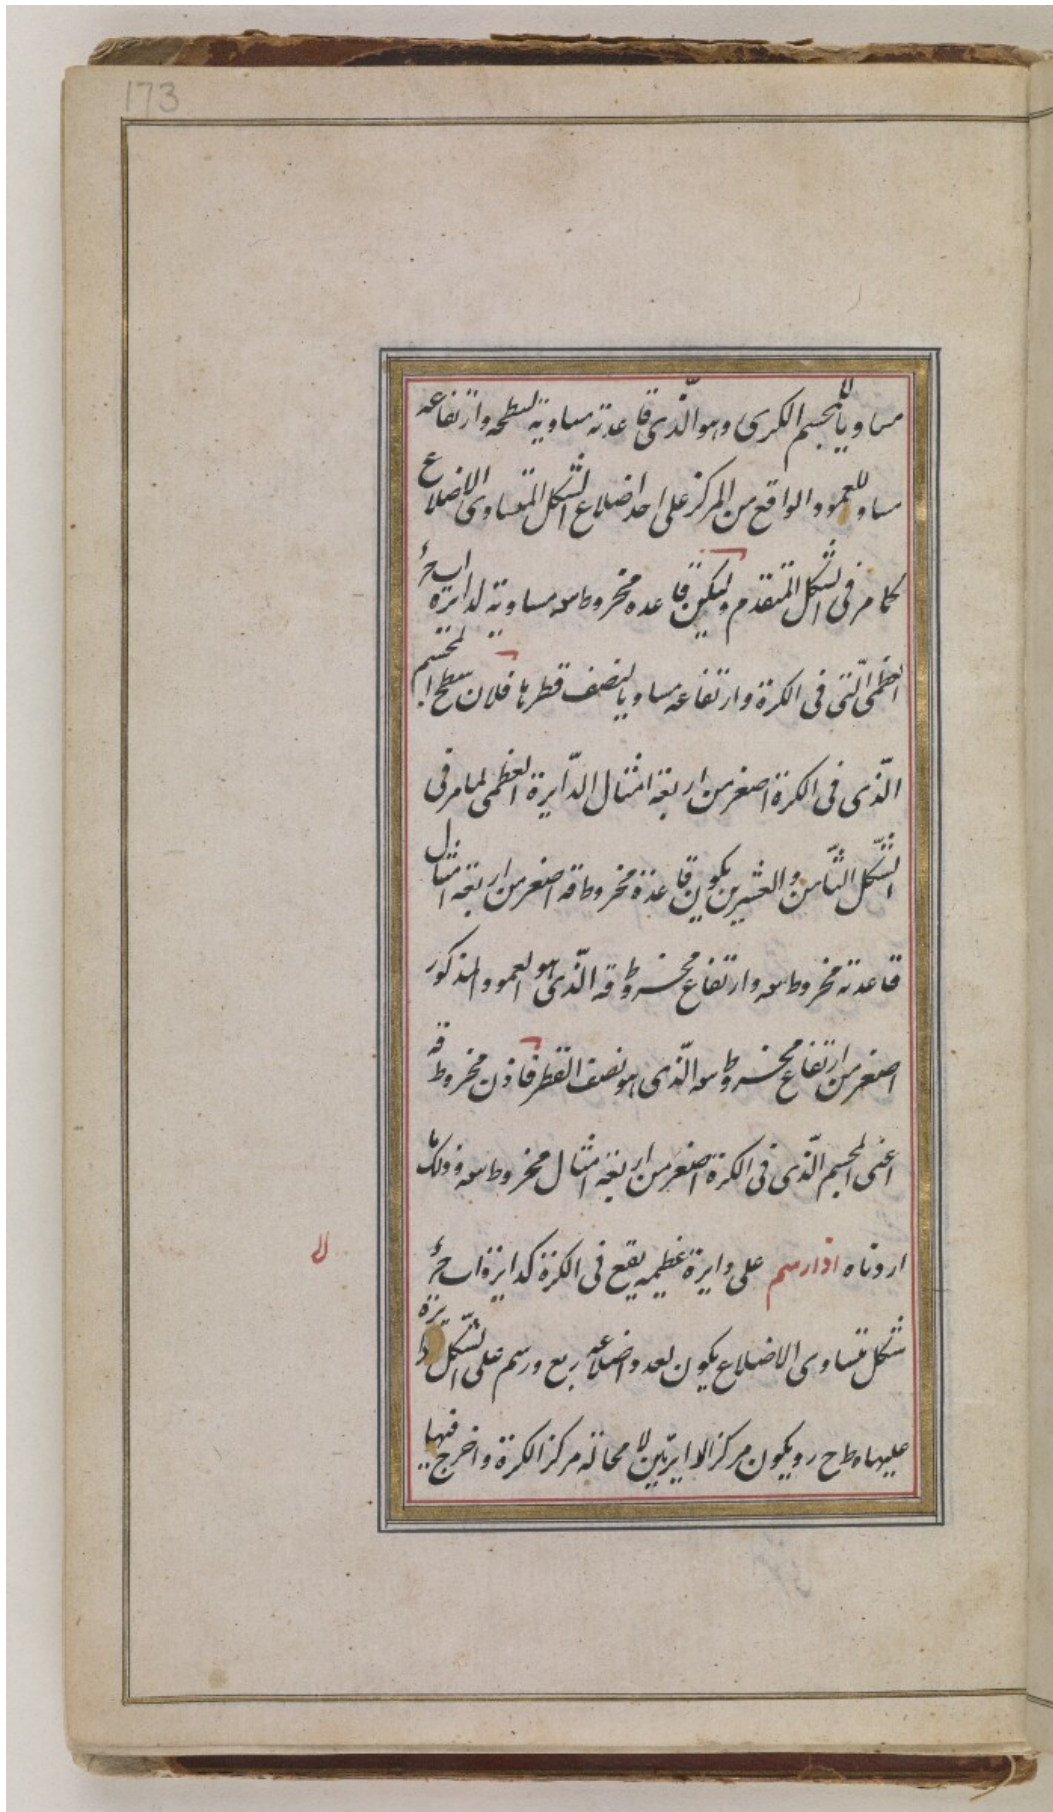 173
مساويا للمجسم الكرى وهو الّذى قاعدته مساوية لسطحه وارتفاعه
مساو للعمود الواقع من المركز على احد اضلاع الشكل المتساوى الاضلاع
كما مر فى الشكل المتقدم وليكن قاعده مخروط سه مساوية لدايرة اب حء
العظمى الّتى فى الكرة وارتفاعه مساويا لنصف قطرها فلان سطح المجسم
الّذى فى الكرة اصغر من اربعة امثال الدّايرة العظمى لما مر فى
الشّكل الثّامن والعشرين يكون قاعدة مخروط قه اصغر من اربعة امثال
قاعدته مخروط سه وارتفاع مخروط قه الّذى هو العمود المذكور
اصغر من ارتفاع مخروط سه الّذى هو نصف القطر فاذن مخروط قه
اعنى المجسم الّذى فى الكرة اصغر من اربعة امثال مخروط سه وذلك ما
اردناه اذا رسم على دايرة عظيمه يقع فى الكرة كدايرة اب حء
لا
شكل متساوى الاضلاع يكون لعدد اضلاعه ربع ورسم على الشّكل دايرة
عليها ه ط ح ر ويكون مركز الدايرتين لا محالة مركز الكرة واخرج فيها